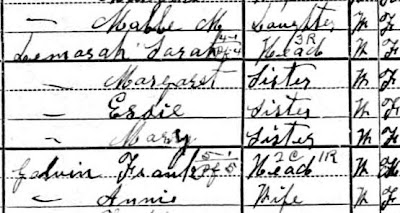 — Mable M Daughter W F
Lemarah Sarah Head 3R W F
— Margaret Sister W F
— Essie Sister W F
— Mary Sister W F
Galvin Frank Head 2C 1R W M
— Annie Wife W F